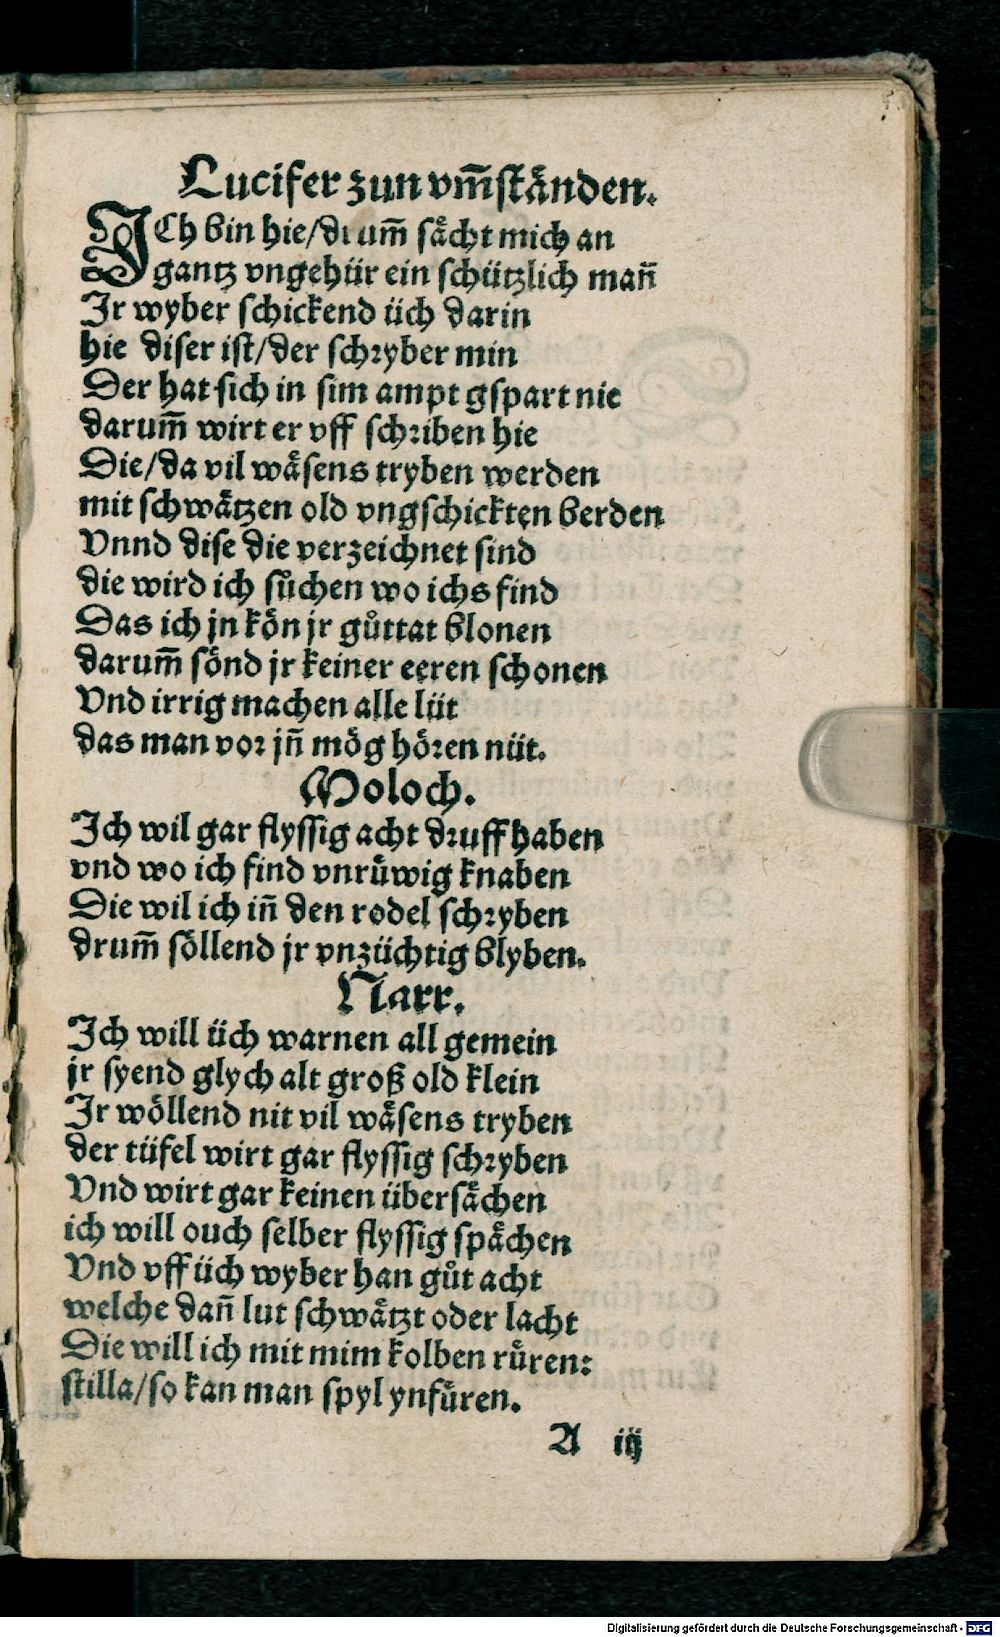 5
Lucifer zun vm̃stånden.
ICh bin hie/drum̃ såcht mich an
gantz vngehür ein schützlich mañ
Ir wyber schickend üch darin
hie diser ist/der schryber min
Der hat sich in sim ampt gspart nie
darum̃ wirt er vff schriben hie
Die/da vil wåsens tryben werden
mit schwåtzen old vngschickten berden
Vnnd dise die verzeichnet sind
die wird ich sůchen wo ichs find
Das ich jn kön jr gůttat blonen
darum̃ sönd jr keiner eeren schonen
Vnd irrig machen alle lüt
das man vor jñ mög hören nüt.
Moloch.
Ich wil gar flyssig acht druff haben
vnd wo ich find vnrüwig knaben
Die wil ich iñ den rodel schryben
drum̃ söllend jr vnzüchtig blyben.
Narr.
Ich will üch warnen all gemein
jr syend glych alt groß old klein
Ir wöllend nit vil wåsens tryben
der tüfel wirt gar flyssig schryben
Vnd wirt gar keinen übersåchen
ich will ouch selber flyssig spåchen
Vnd vff üch wyber han gůt acht
welche dañ lut schwåtzt oder lacht
Die will ich mit mim kolben rüren:
stilla/so kan man spyl ynfüren.
A iij
Digitalisierung gefördert durch die Deutsche Forschungsgemeinschaft - DFG